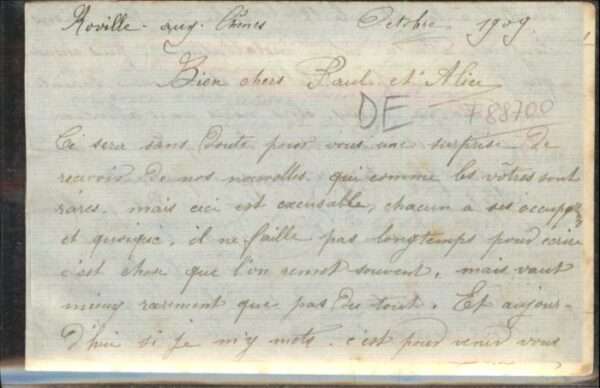 Roville-aux-Chênes Octobre 1909.
Bien chers Paul et Alice
DE F88700
Ce sera sans doute pour vous une surprise de
recevoir de nos nouvelles qui comme les vôtres sont
rares. mais ceci est excusable, chacun a ses occup
et quoique, il ne faille pas longtemps pour écrire
c'est chose que l'on remet souvent, mais vaut
mieux rarement que pas du tout. Et aujour-
d'hui si je m'y mets. c'est pour venir vous